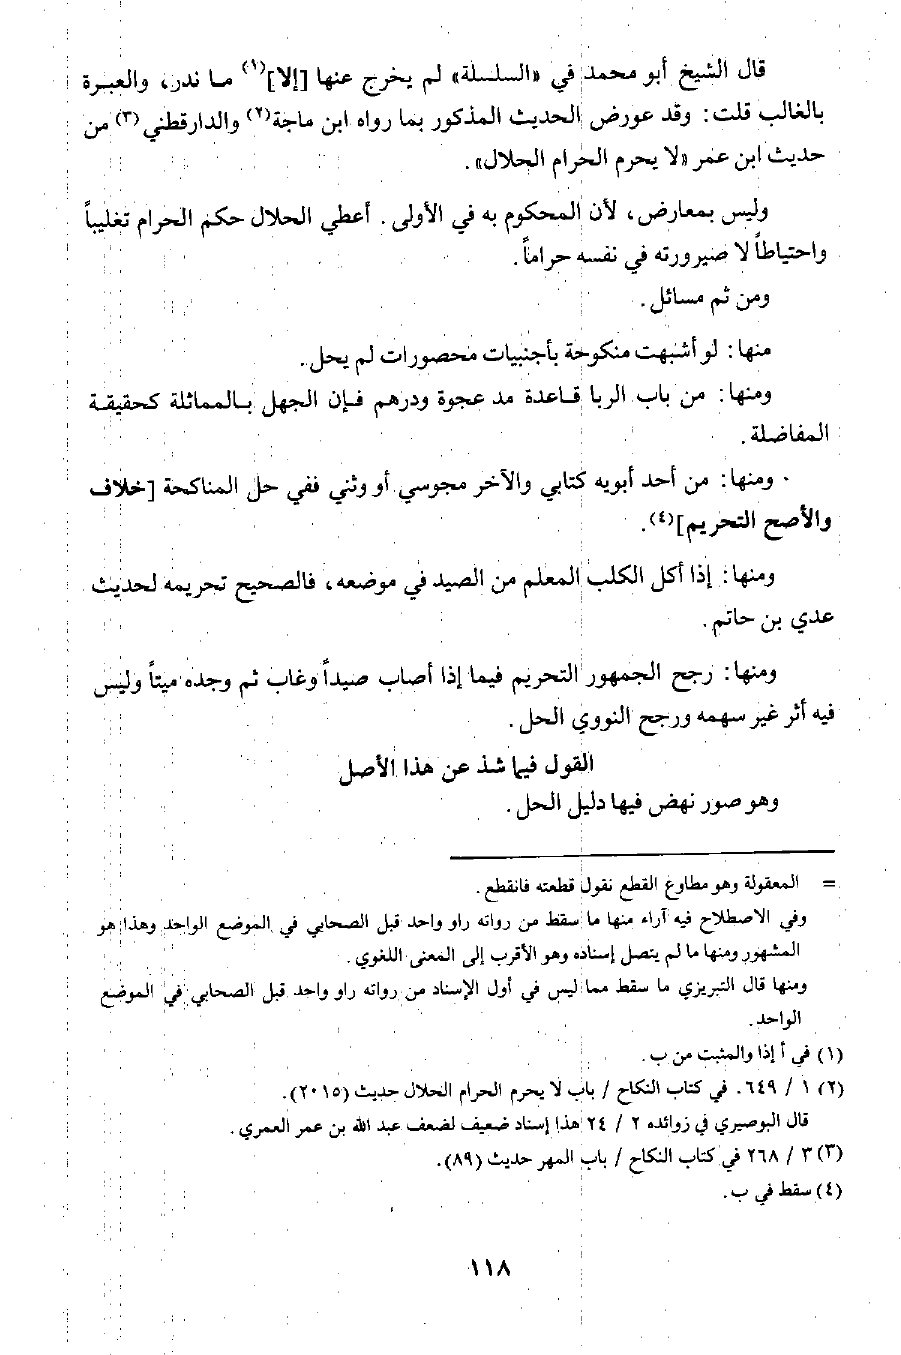 قال الشيخ أبو محمد في «السلسلة» لم يخرج عنها [إلا](١) ما ندر، والعبرة
بالغالب قلت: وقد عورض الحديث المذكور بما رواه ابن ماجة(٢) والدارقطني(٣) من
حديث ابن عمر «لا يحرم الحرام الحلال».
وليس بمعارض، لأن المحكوم به في الأولى. أعطي الحلال حكم الحرام تغليباً
واحتياطاً لا صيرورته في نفسه حراماً.
ومن ثم مسائل.
منها: لو أشبهت منكوحة بأجنبيات محصورات لم يحل.
ومنها: من باب الربا قاعدة مد عجوة ودرهم فإن الجهل بالمماثلة كحقيقة
المفاضلة.
ومنها: من أحد أبويه كتابي والآخر مجوسي أو وثني ففي حل المناكحة [خلاف
والأصح التحريم](٤).
ومنها: إذا أكل الكلب المعلم من الصيد في موضعه، فالصحيح تحريمه لحديث
عدي بن حاتم.
ومنها: رجح الجمهور التحريم فيما إذا أصاب صيداً وغاب ثم وجده ميتاً وليس
فيه أثر غير سهمه ورجح النووي الحل.
القول فيما شذ عن هذا الأصل
وهو صور نهض فيها دليل الحل.
= المعقولة وهو مطاوع القطع نقول قطعته فانقطع.
وفي الاصطلاح فيه آراء منها ما سقط من رواته راو واحد قبل الصحابي في الموضع الواحد وهذا هو
المشهور ومنها ما لم يتصل إسناده وهو الأقرب إلى المعنى اللغوي.
ومنها قال التبريزي ما سقط مما ليس في أول الإسناد من رواته راو واحد قبل الصحابي في الموضع
الواحد.
(١) في أ إذا والمثبت من ب.
(٢) ١ / ٦٤٩. في كتاب النكاح / باب لا يحرم الحرام الحلال حديث (٢٠١٥).
قال البوصيري في زوائده ٢ / ٢٤ هذا إسناد ضعيف لضعف عبد الله بن عمر العمري.
(٣) ٣ / ٢٦٨ في كتاب النكاح / باب المهر حديث (٨٩).
(٤) سقط في ب.
١١٨